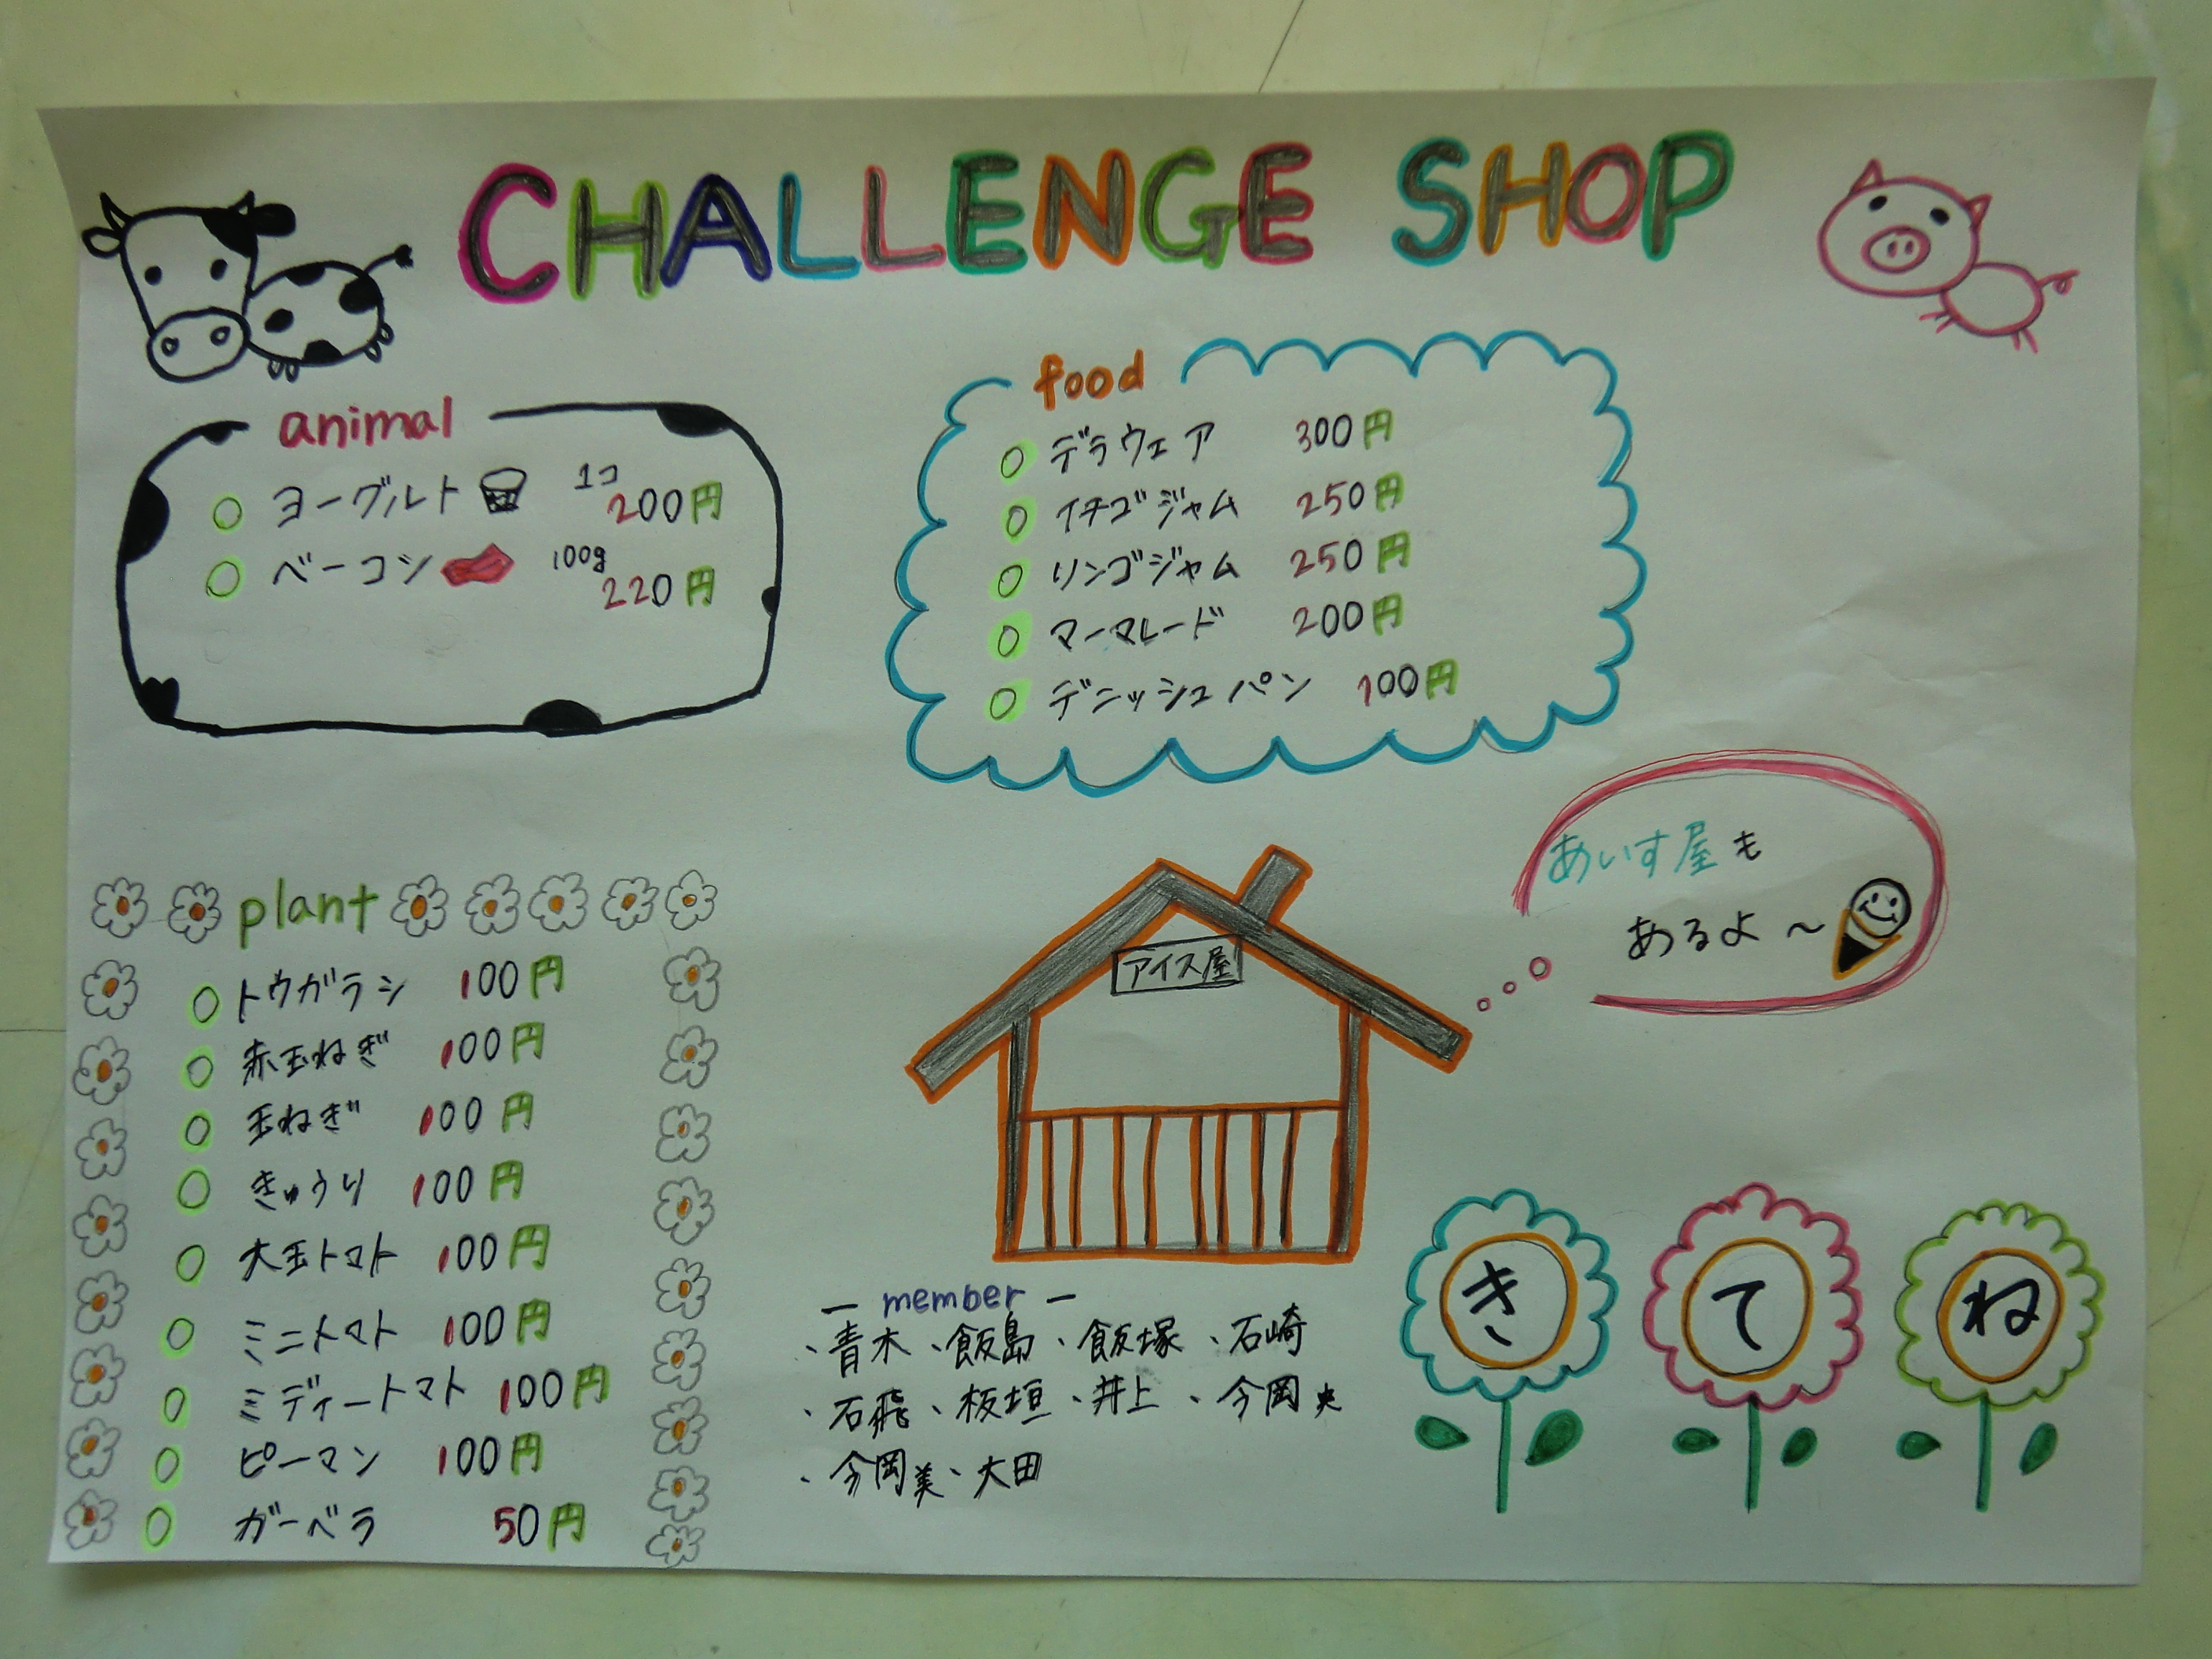 CHALLENGE SHOP
animal
○ヨーグルト 1コ 200円
○ベーコン 100g 220円
food
○デラウェア 300円
○イチゴジャム 250円
○リンゴジャム 250円
○マーマレード 200円
○デニッシュパン 100円
plant
○トウガラシ 100円
○赤玉ねぎ 100円
○玉ねぎ 100円
○きゅうり 100円
○大玉トマト 100円
○ミニトマト 100円
○ミディートマト 100円
○ピーマン 100円
○ガーベラ 50円
あいす屋も
あるよ～
アイス屋
ー member ー
、青木、飯島、飯塚、石崎
、石飛、板垣、井上、今岡央
、今岡美、大田
きてね